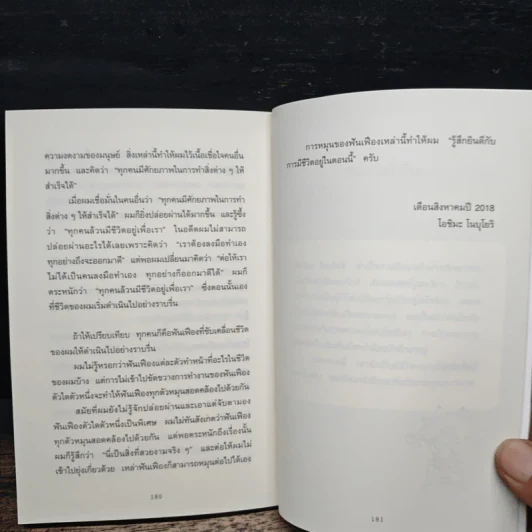 ความงดงามของมนุษย์ สิ่งเหล่านี้ทำให้ผมไว้เนื้อเชื่อใจคนอื่น
มากขึ้น และคิดว่า "ทุกคนมีศักยภาพในการทำสิ่งต่าง ๆ ให้
สำเร็จได้"
เมื่อผมเชื่อมั่นในคนอื่นว่า "ทุกคนมีศักยภาพในการทำ
สิ่งต่าง ๆ ให้สำเร็จได้" ผมก็ยิ่งปล่อยผ่านได้มากขึ้น และรู้ซึ้ง
ว่า "ทุกคนล้วนมีชีวิตอยู่เพื่อเรา" ในอดีตผมไม่สามารถ
ปล่อยผ่านอะไรได้เลยเพราะคิดว่า "เราต้องลงมือทำเอง
ทุกอย่างถึงจะออกมาดี" แต่พอผมเปลี่ยนมาคิดว่า "ต่อให้เรา
ไม่ได้เป็นคนลงมือทำเอง ทุกอย่างก็ออกมาดีได้" ผมก็
ตระหนักว่า "ทุกคนล้วนมีชีวิตอยู่เพื่อเรา" ซึ่งตอนนั้นเอง
ที่ชีวิตของผมเริ่มดำเนินไปอย่างราบรื่น
ถ้าให้เปรียบเทียบ ทุกคนก็คือฟันเฟืองที่ขับเคลื่อนชีวิต
ของผมให้ดำเนินไปอย่างราบรื่น
ผมไม่รู้หรอกว่าฟันเฟืองแต่ละตัวทำหน้าที่อะไรในชีวิต
ของผมบ้าง แต่การไม่เข้าไปขัดขวางการทำงานของฟันเฟือง
ตัวใดตัวหนึ่งจะทำให้ฟันเฟืองทุกตัวหมุนสอดคล้องไปด้วยกัน
สมัยที่ผมยังไม่รู้จักปล่อยผ่านและเอาแต่จับตามอง
ฟันเฟืองตัวใดตัวหนึ่งเป็นพิเศษ ผมไม่ทันสังเกตว่าฟันเฟือง
ทุกตัวหมุนสอดคล้องไปด้วยกัน แต่พอตระหนักถึงเรื่องนั้น
ผมก็รู้สึกว่า "นี่เป็นสิ่งที่สวยงามจริง ๆ" และต่อให้ผมไม่
เข้าไปยุ่งเกี่ยวด้วย เหล่าฟันเฟืองก็สามารถหมุนต่อไปได้เอง
180
การหมุนของฟันเฟืองเหล่านี้ทำให้ผม "รู้สึกยินดีกับ
การมีชีวิตอยู่ในตอนนี้" ครับ
เดือนสิงหาคมปี 2018
โอชิมะ โนบุโยริ
181